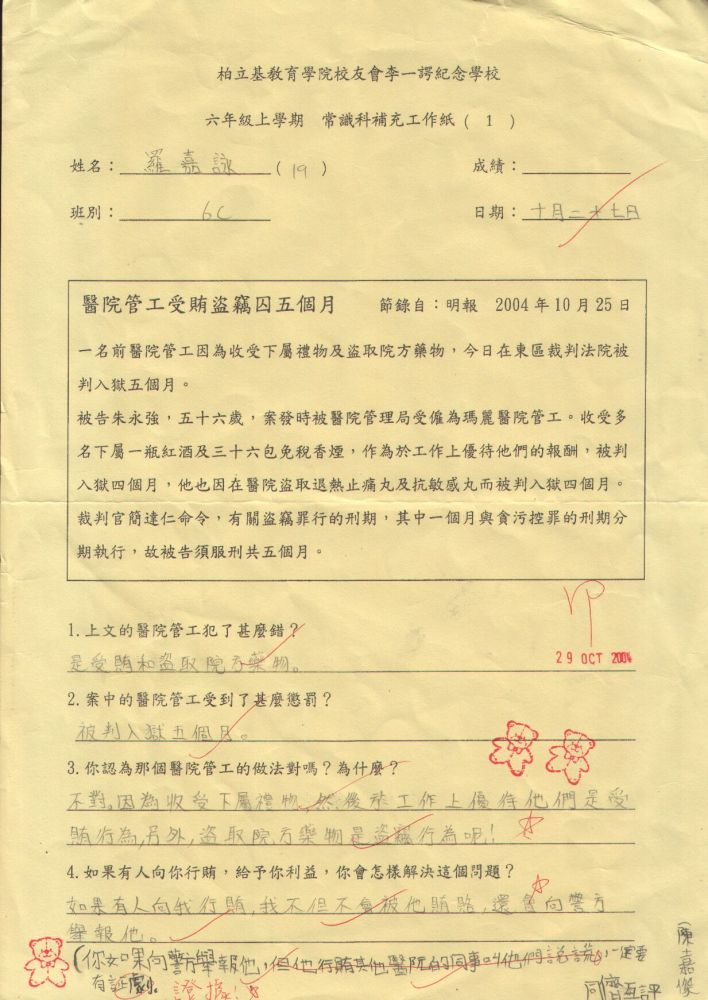 柏立基教育學院校友會李一諤紀念學校
六年級上學期 常識科補充工作紙 ( 1 )
姓名：羅嘉詠 ( 19 ) 成績：
班別：6C 日期：十月二十七日
醫院管工受賄盜竊囚五個月 節錄自：明報 2004 年 10 月 25 日
一名前醫院管工因為收受下屬禮物及盜取院方藥物，今日在東區裁判法院被
判入獄五個月。
被告朱永強，五十六歲，案發時被醫院管理局受僱為瑪麗醫院管工。收受多
名下屬一瓶紅酒及三十六包免稅香煙，作為於工作上優待他們的報酬，被判
入獄四個月，他也因在醫院盜取退熱止痛丸及抗敏感丸而被判入獄四個月。
裁判官簡達仁命令，有關盜竊罪行的刑期，其中一個月與貪污控罪的刑期分
期執行，故被告須服刑共五個月。
1.上文的醫院管工犯了甚麼錯？
29 OCT 2004
是受賄和盜取院方藥物。
2.案中的醫院管工受到了甚麼懲罰？
被判入獄五個月。
3.你認為那個醫院管工的做法對嗎？為什麼？
不對。因為收受下屬禮物，然後於工作上優待他們是受
賄行為，另外，盜取院方藥物是盜竊行為呢！
4.如果有人向你行賄，給予你利益，你會怎樣解決這個問題？
如果有人向我行賄，我不但不會被他賄賂，還會向警方
舉報他。
(你如果向警方舉報他，但他行賄其他醫院的同事叫他們說謊，一定要
有證 證據！
同儕互評
(陳嘉傑